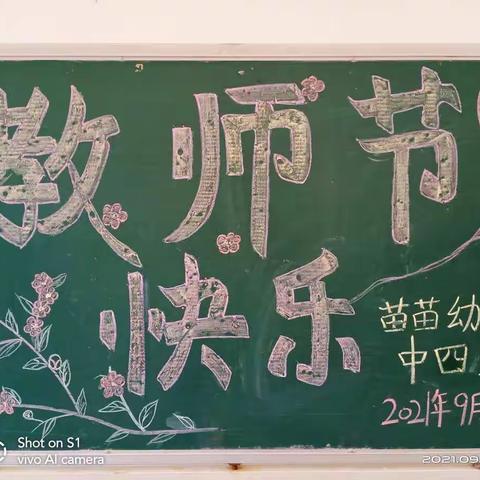 教师节
快乐
苗苗幼
中四
2021年9月
Shot on S1
vivo AI camera
2021.09